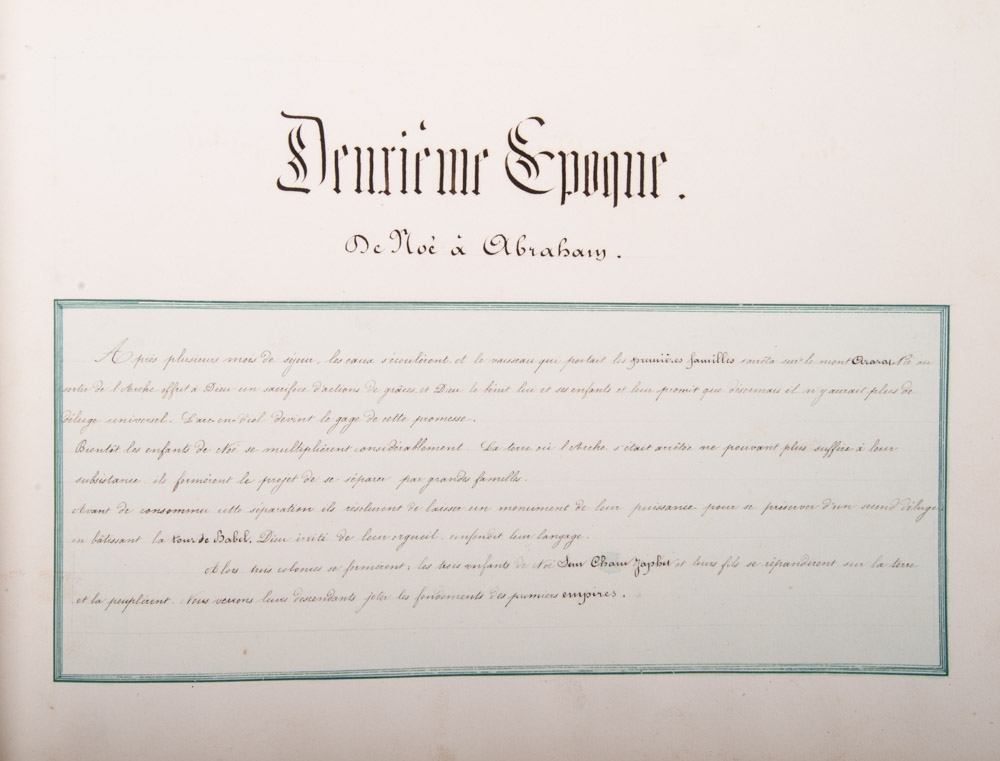 Deuxième Epoque.
De Noé à Abraham.
Après plusieurs mois de séjour, les eaux s'écoulèrent et le vaisseau qui portait les premières familles s'arrêta sur le mont Ararat. Noé au
sortir de l'Arche offrit à Dieu un sacrifice d'actions de grâces, et Dieu le bénit lui et ses enfants et leur promit que désormais il n'y aurait plus de
déluge universel. L'arc-en-ciel devint le gage de cette promesse.
Bientôt les enfants de Noé se multiplièrent considérablement. La terre où l'Arche s'était arrêtée ne pouvant plus suffire à leur
subsistance, ils formèrent le projet de se séparer par grandes familles.
Avant de consommer cette séparation ils résolurent de laisser un monument de leur puissance pour se préserver d'un second déluge
en bâtissant la tour de Babel. Dieu irrité de leur orgueil confondit leur langage.
Alors trois colonies se formèrent; les trois enfants de Noé Sem Cham Japhet et leurs fils se répandirent sur la terre
et la peuplèrent. Nous verrons leurs descendants jeter les fondements des premiers empires.